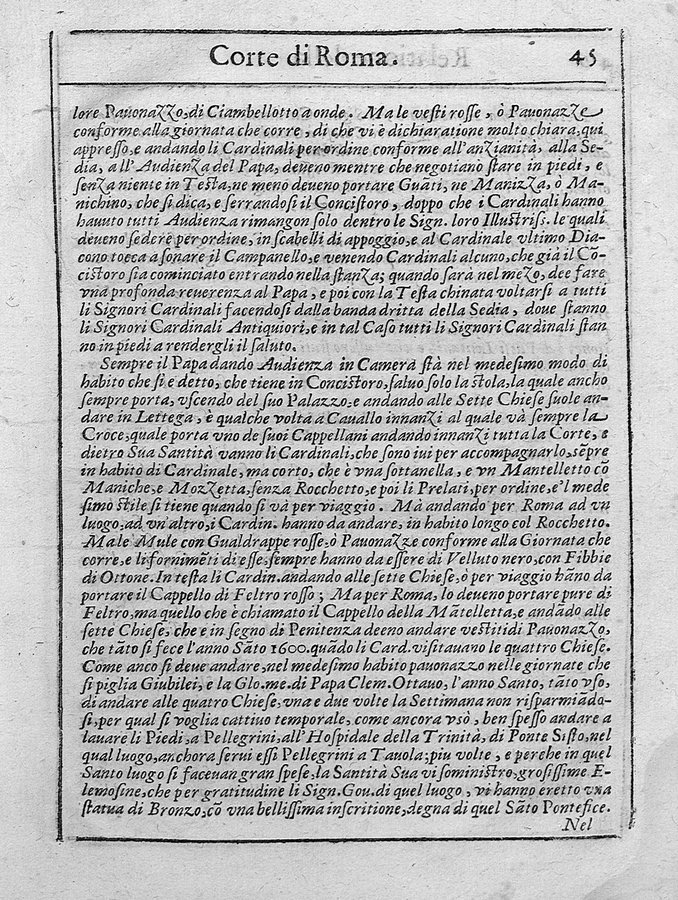 Corte di Roma. 45
lore Pauonazzo, di Ciambellotto a onde. Ma le vesti rosse, ò Pauonazze
conforme alla giornata che corre, di che vi è dichiaratione molto chiara, qui
appresso, e andando li Cardinali per ordine conforme all'anzianità, alla Se-
dia, a ll'Audienza del Papa, deueno mentre che negotiano stare in piedi, e
senza niente in Testa, ne meno deueno portare Guāti, ne Manizza, ò Ma-
nichino, che si dica, e serrandosi il Concistoro, doppo che i Cardinali hanno
hauuto tutti Audienza rimangon solo dentro le Sign. loro Illustriss. le quali
deueno sedere per ordine, in scabelli di appoggio, e al Cardinale vltimo Dia-
cono tocca a sonare il Campanello, e venendo Cardinali alcuno, che già il Cō-
cistoro sia cominciato entrando nella stanza; quando sarà nel mezo, dee fare
vna profonda reuerenza al Papa, e poi con la Testa chinata voltarsi a tutti
li Signori Cardinali facendosi dalla banda dritta della Sedia, doue stanno
li Signori Cardinali Antiquiori, e in tal Caso tutti li Signori Cardinali stan
no in piedi a rendergli il saluto.
Sempre il Papa dando Audienza in Camera stà nel medesimo modo di
habito che si e detto, che tiene in Concistoro, saluo solo la stola, la quale ancho
sempre porta, vscendo del suo Palazzo, e andando alle Sette Chiese suole an-
dare in Lettega, è qualche volta a Cauallo innanzi al quale và sempre la
Croce, quale porta vno de suoi Cappellani andando innanzi tutta la Corte, e
dietro Sua Santità vanno li Cardinali, che sono iui per accompagnarlo, sēpre
in habito di Cardinale, ma corto, che è vna sottanella, e vn Mantelletto cō
Maniche, e Mozzetta, senza Rocchetto, e poi li Prelati, per ordine, e'l mede
simo stile si tiene quando si và per viaggio. Mà andando per Roma ad vn
luogo, ad vn'altro, i Cardin. hanno da andare, in habito longo col Rocchetto.
Ma le Mule con Gualdrappe rosse, ò Pauonazze conforme alla Giornata che
corre, e li fornimēti di esse, sempre hanno da essere di Velluto nero, con Fibbie
di Ottone. In testa li Cardin. andando alle sette Chiese, o per viaggio hāno da
portare il Cappello di Feltro rosso; Ma per Roma, lo deueno portare pure di
Feltro, ma quello che è chiamato il Cappello della Mātelletta, e andādo alle
sette Chiese, che e in segno di Penitenza deeno andare vestiti di Pauonazzo,
che tāto si fece l'anno Sāto 1600. quādo li Card. visitauano le quattro Chiese.
Come anco si deue andare, nel medesimo habito pauonazzo nelle giornate che
si piglia Giubilei, e la Glo. me. di Papa Clem. Ottauo, l'anno Santo, tāto vso,
di andare alle quatro Chiese, vna e due volte la Settimana non risparmiādo-
si, per qual si voglia cattiuo temporale, come ancora vsò, ben spesso andare a
lauare li Piedi, a Pellegrini, all'Hospidale della Trinità, di Ponte Sisto, nel
qual luogo, anchora serui essi Pellegrini a Tauola; piu volte, e perche in quel
Santo luogo si faceuan gran spese, la Santità Sua vi sominístro, grosissime E-
lemosine, che per gratitudine li Sign. Gou. di quel luogo, vi hanno eretto vna
statua di Bronzo, cō vna bellissima inscritione, degna di quel Sāto Pontefice.
Nel